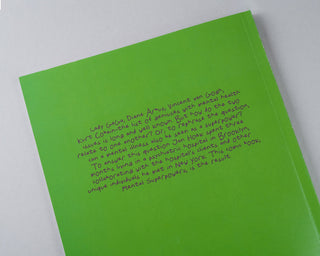 Lady GaGa, Diane Arbus, Vincent van Gogh,
Kurt Cobain: the list of geniuses with mental health
issues is long and well known. But how do the two
relate to one another? Or, to rephrase the question,
can a mental illness also be seen as a superpower?
To answer this question Jan Hoek spent three
months living in a psychiatric hospital in Brooklyn
collaborating with the hospital's clients, and other
unique individuals he met in New York. This comic book,
Mental Superpowers, is the result.